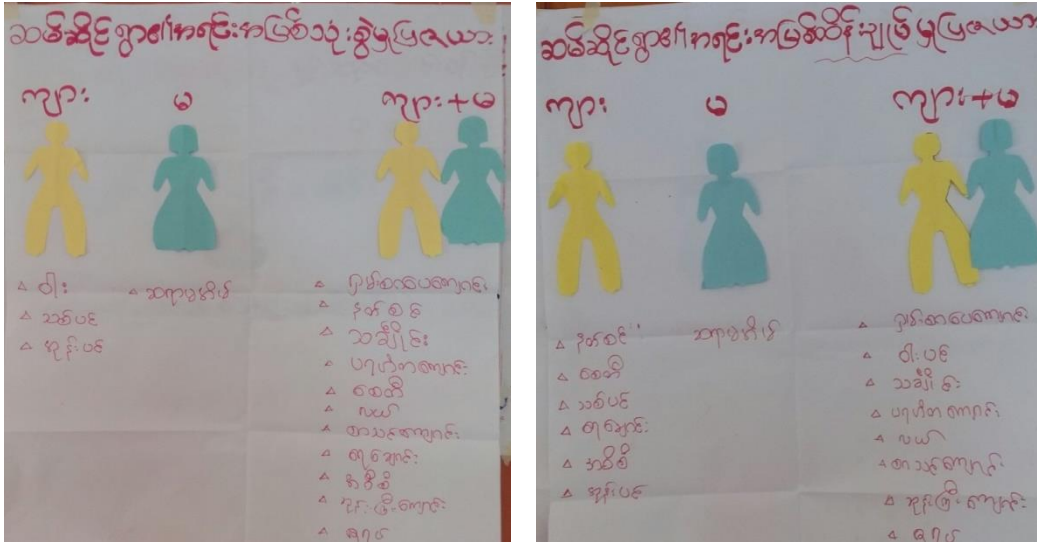 ဆမ်ဆိုင်ရွာ၏အရင်းအမြစ်သုံးစွဲမှုပြဇယား
ကျား မ ကျား+မ
ဝါး
သစ်ပင်
အုန်းပင်
ဆရာမအိမ်
ရှမ်းစာပေကျောင်း
နတ်စင်
သင်္ချိုင်း
ပရဟိတကျောင်း
စေတီ
လယ်
စာသင်ကျောင်း
ရေချောင်း
အဝီစိ
ဘုန်းကြီးကျောင်း
ဆမ်ဆိုင်ရွာ၏အရင်းအမြစ်ထိန်းချုပ်မှုပြဇယား
ကျား မ ကျား+မ
နတ်စင်
စေတီ
သစ်ပင်
ရေချောင်း
အဝီစိ
အုန်းပင်
ဆရာမအိမ်
ရှမ်းစာပေကျောင်း
ဝါးပင်
သင်္ချိုင်း
ပရဟိတကျောင်း
လယ်
စာသင်ကျောင်း
ဘုန်းကြီးကျောင်း